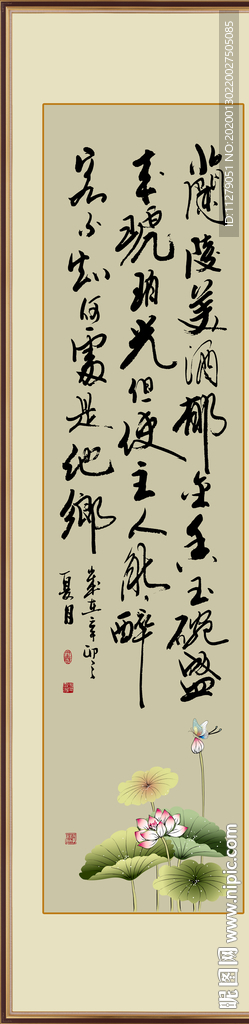 蘭陵美酒郁金香玉碗盛
來琥珀光但使主人能醉
客不知何處是他鄉
歲在辛卯之
夏月
ID:11279051 NO:20200130220027505085
昵图网 www.nipic.com